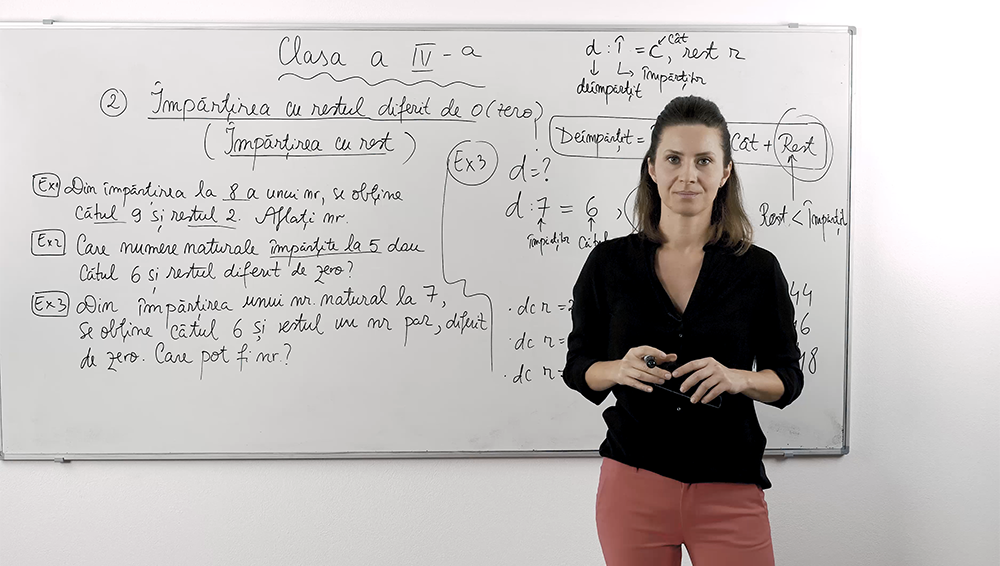 Clasa a IV-a
② Împărțirea cu restul diferit de 0 (zero)
(Împărțirea cu rest)
Ex1 Din împărțirea la 8 a unui nr, se obține
câtul 9 și restul 2. Aflați nr.
Ex2 Care numere naturale împărțite la 5 dau
câtul 6 și restul diferit de zero?
Ex3) Din împărțirea unui nr. natural la 7,
se obține câtul 6 și restul un nr par, diferit
de zero. Care pot fi nr.?
cât
d : Î = C, rest r
deîmpărțit împărțitor
Deîmpărțit = Cât + Rest
!
Rest < Împărțit
Ex3 d = ?
d : 7 = 6,
Câtul
· dc r = 44
· dc r = 46
· dc r 48